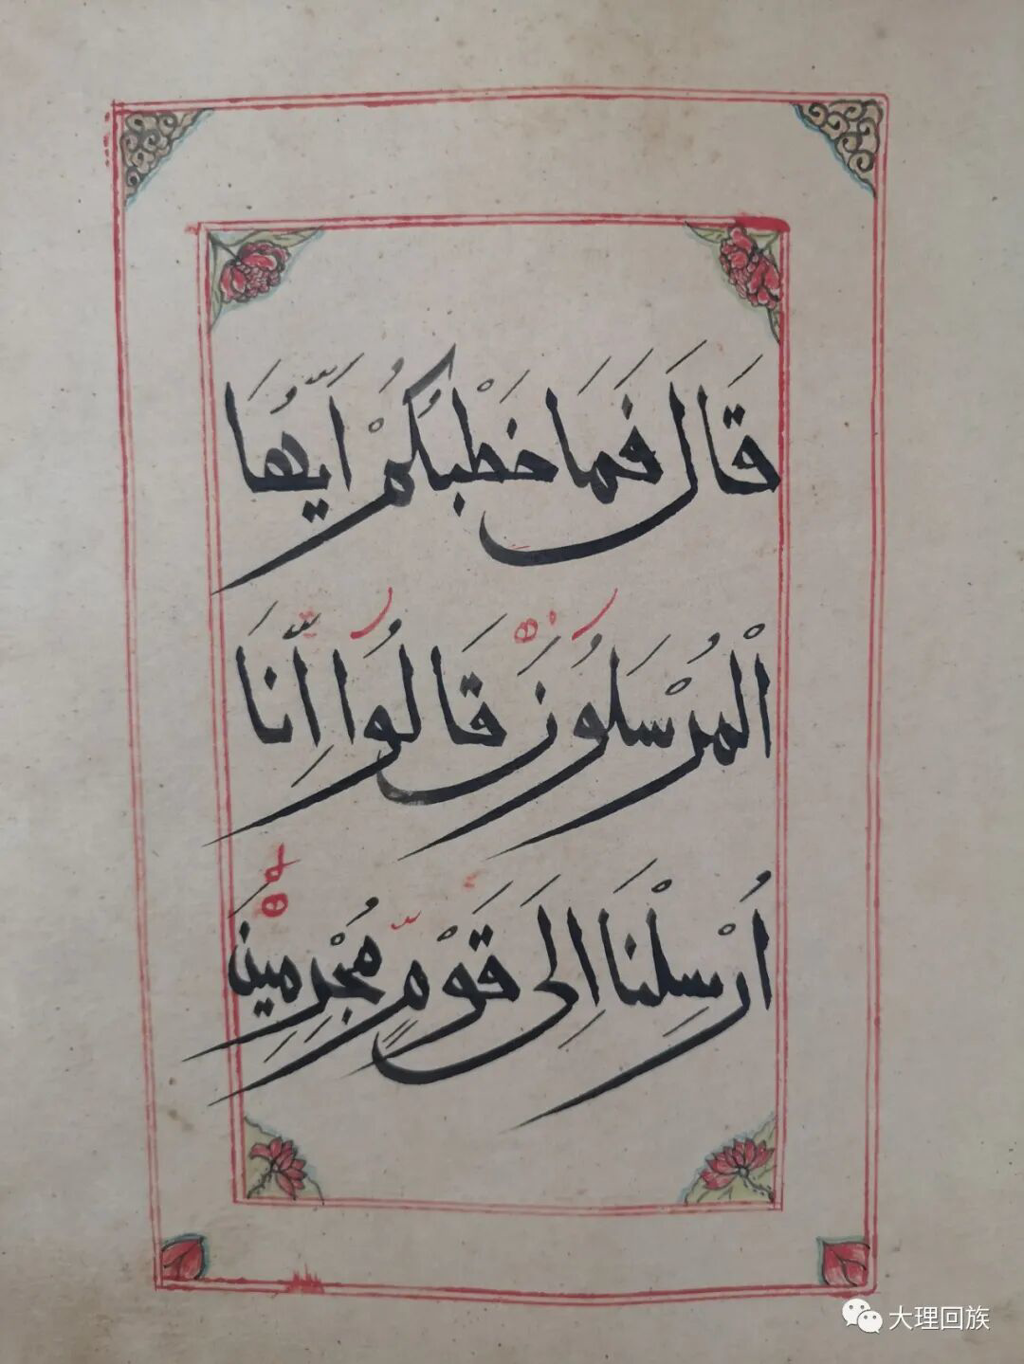 قَالَ فَمَا خَطْبُكُمْ اَيُّهَا
الْمُرْسَلُونَ قَالُوا اِنَّا
اُرْسِلْنَا اِلَى قَوْمٍ مُجْرِمِينَ
大理回族